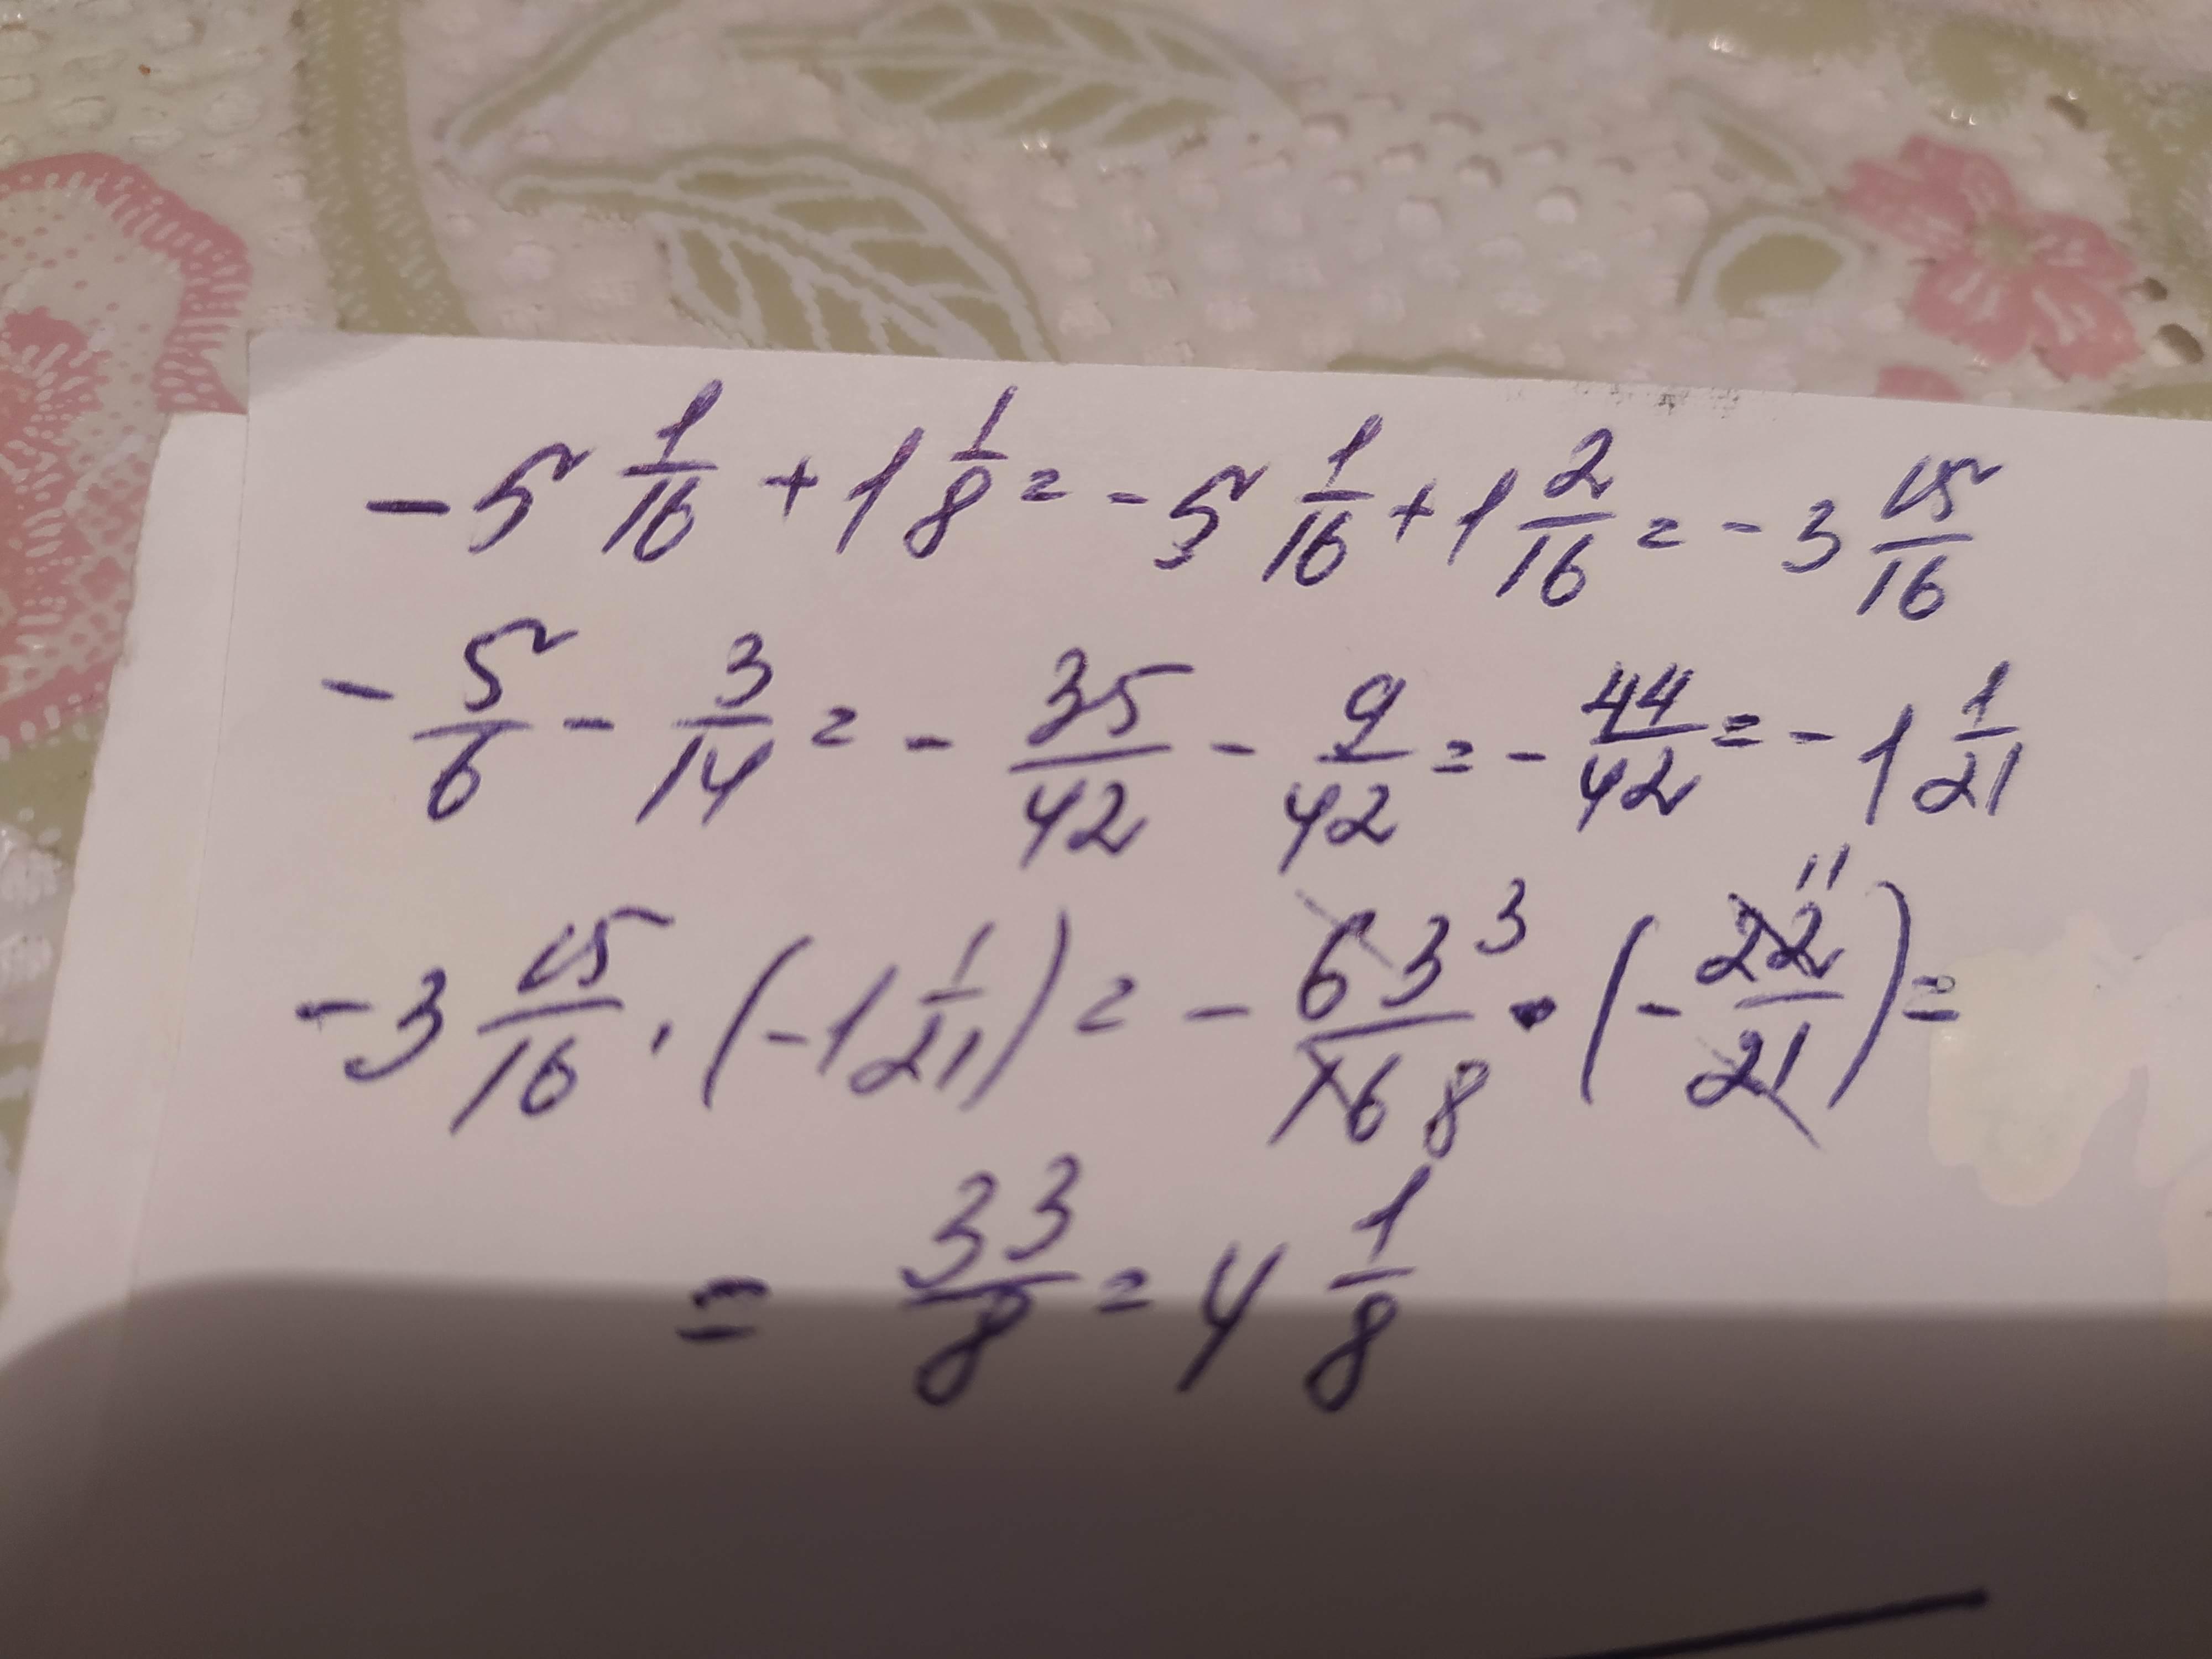 -5 1/16 + 1 1/8 = -5 1/16 + 1 2/16 = -3 15/16
- 5/6 - 3/14 = - 35/42 - 9/42 = - 44/42 = -1 1/21
-3 15/16 · (-1 1/21) = - 63 3/16 8 · (- 22 11/21) =
= 33/8 = 4 1/8